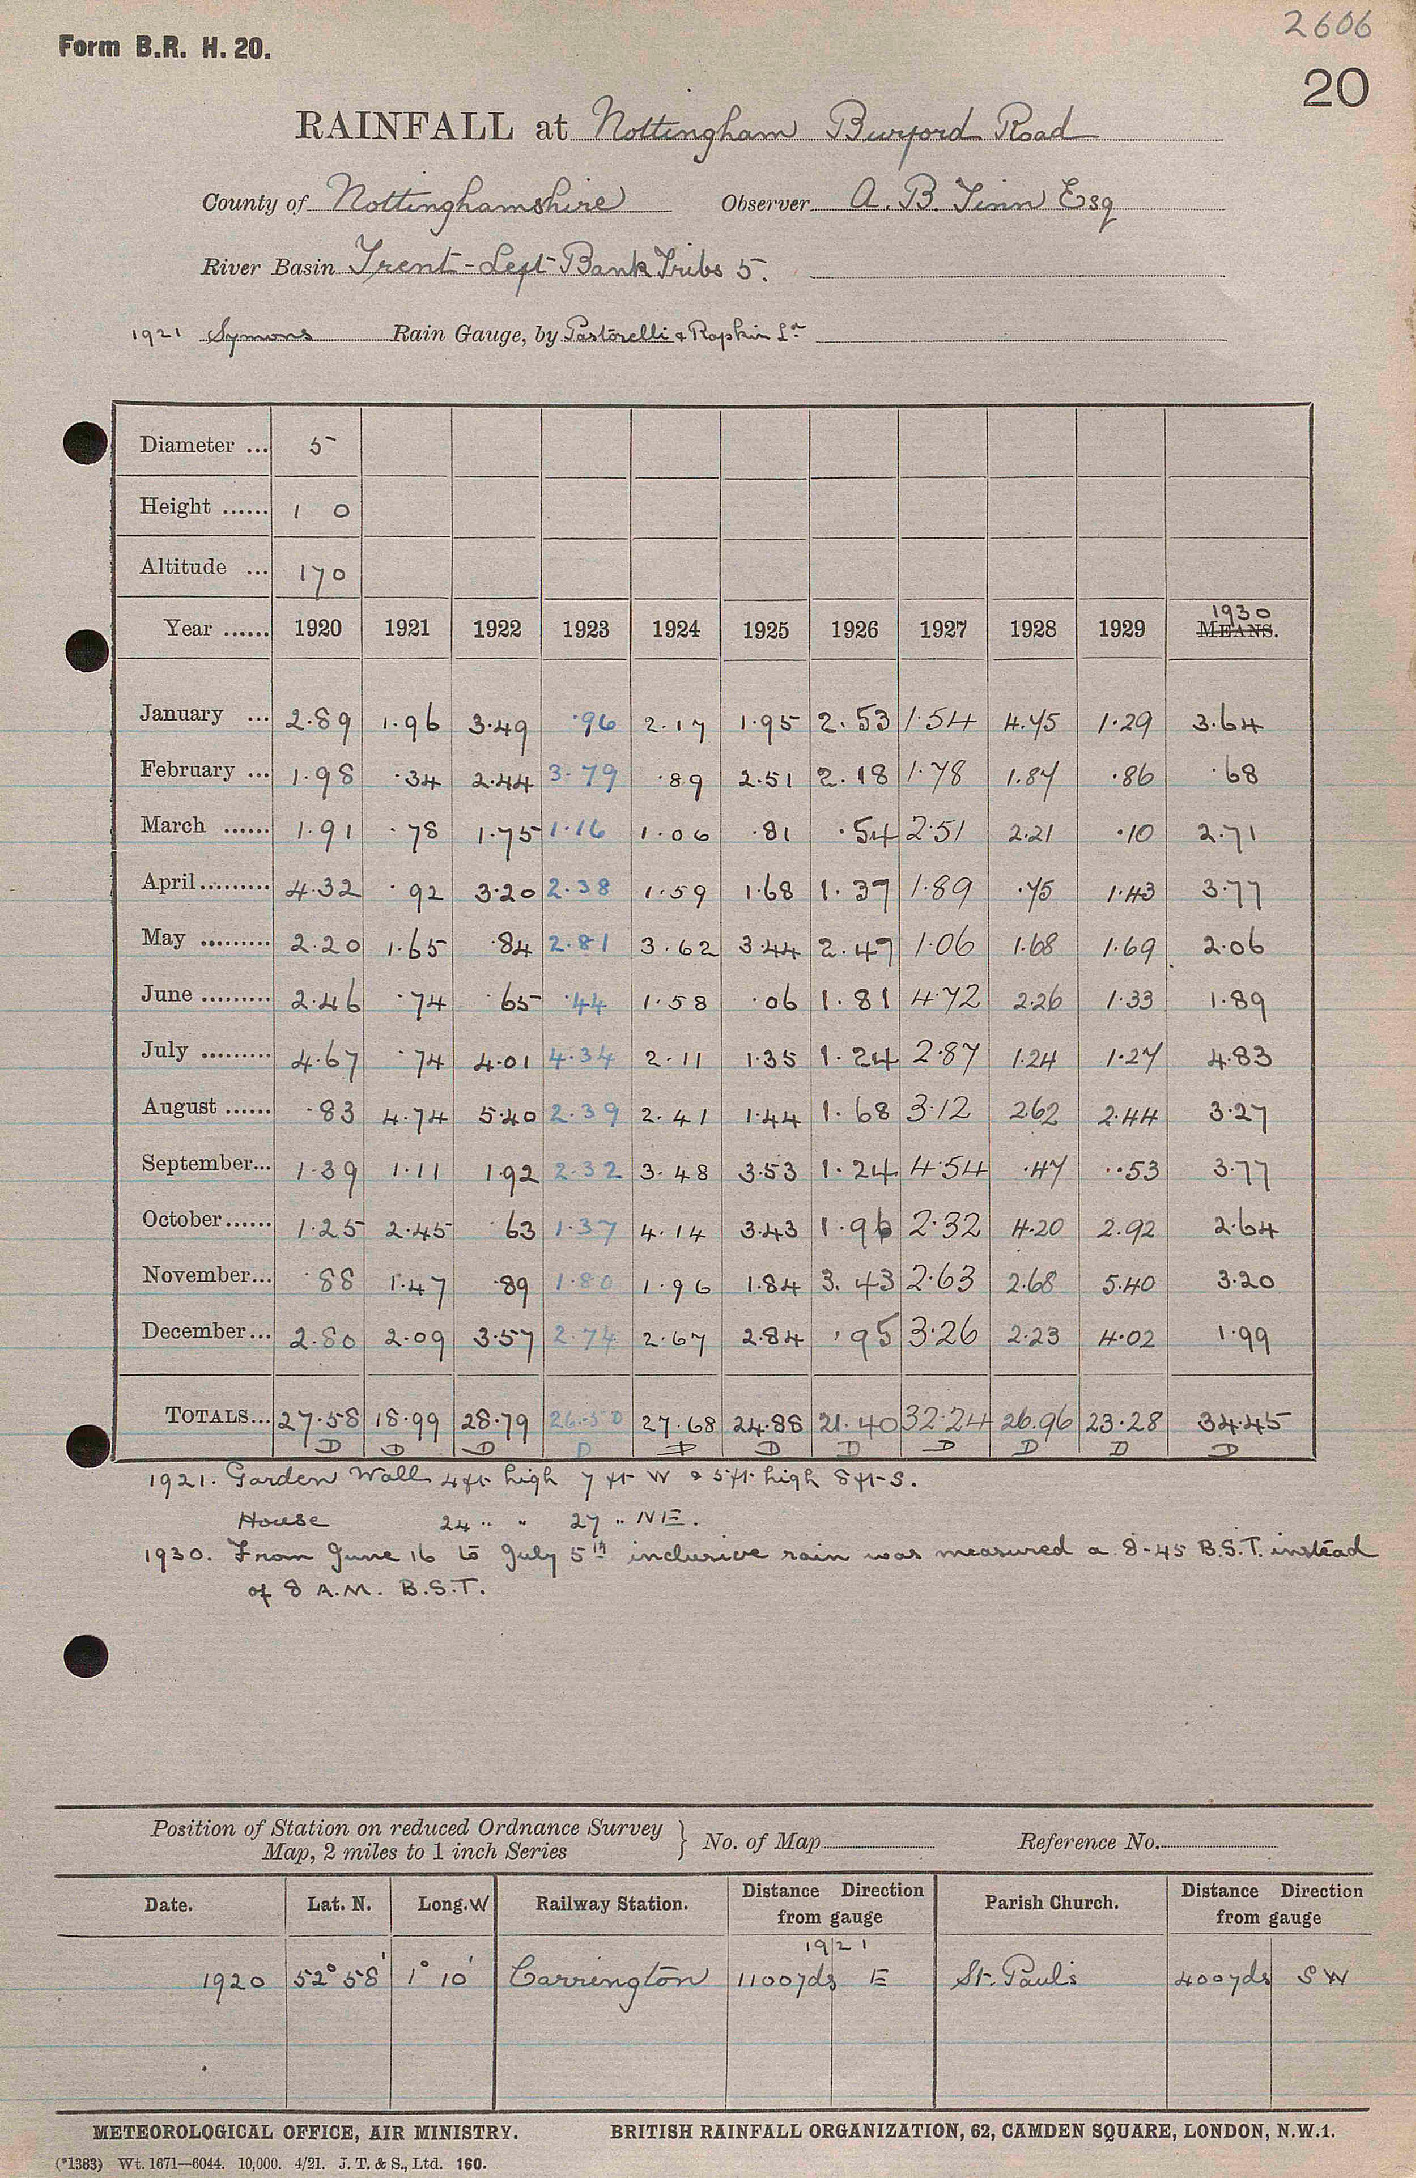 2606
Form B.R. H. 20.
20
RAINFALL at Nottingham Burford Road
County of Nottinghamshire Observer A. B. Tinn Esq
River Basin Trent - Left Bank Tribs 5.
1921 Symons Rain Gauge, by Pastorelli & Rapkin Ld
Diameter ... 5
Height ...... 1 0
Altitude ... 170
Year ...... 1920 1921 1922 1923 1924 1925 1926 1927 1928 1929 1930 MEANS.
January ... 2.89 1.96 3.49 .96 2.17 1.95 2.53 1.54 4.75 1.29 3.64
February ... 1.98 .34 2.44 3.79 .89 2.51 2.18 1.78 1.87 .86 .68
March ...... 1.91 .78 1.75 1.16 1.06 .81 .54 2.51 2.21 .10 2.71
April ......... 4.32 .92 3.20 2.38 1.59 1.68 1.37 1.89 .75 1.43 3.77
May ......... 2.20 1.65 .84 2.81 3.62 3.44 2.47 1.06 1.68 1.69 2.06
June ......... 2.46 .74 .65 .44 1.58 .06 1.81 4.72 2.26 1.33 1.89
July ......... 4.67 .74 4.01 4.34 2.11 1.35 1.24 2.87 1.24 1.27 4.83
August ...... .83 4.74 5.40 2.39 2.41 1.44 1.68 3.12 262 2.44 3.27
September... 1.39 1.11 1.92 2.32 3.48 3.53 1.24 4.54 .47 .53 3.77
October...... 1.25 2.45 .63 1.37 4.14 3.43 1.96 2.32 4.20 2.92 2.64
November... .88 1.47 .89 1.80 1.96 1.84 3.43 2.63 2.68 5.40 3.20
December... 2.80 2.09 3.57 2.74 2.67 2.84 .95 3.26 2.23 4.02 1.99
TOTALS... 27.58 18.99 28.79 26.50 27.68 24.88 21.40 32.24 26.96 23.28 34.45
D D D D D D D D D D D
1921. Garden Wall 4ft high 7 ft W & 5ft high 8ft S.
House 24 " " 27 " NE.
1930. From June 16 to July 5th inclusive rain was measured a 8-45 B.S.T. instead
of 8 A.M. B.S.T.
Position of Station on reduced Ordnance Survey
Map, 2 miles to 1 inch Series } No. of Map Reference No.
Date. Lat. N. Long. W Railway Station. Distance Direction from gauge Parish Church. Distance Direction from gauge
1921
1920 52° 58' 1° 10' Carrington 1100yds E St. Paul's 400yds SW
METEOROLOGICAL OFFICE, AIR MINISTRY. BRITISH RAINFALL ORGANIZATION, 62, CAMDEN SQUARE, LONDON, N.W.1.
(*1383) Wt. 1671—6044. 10,000. 4/21. J. T. & S., Ltd. 160.